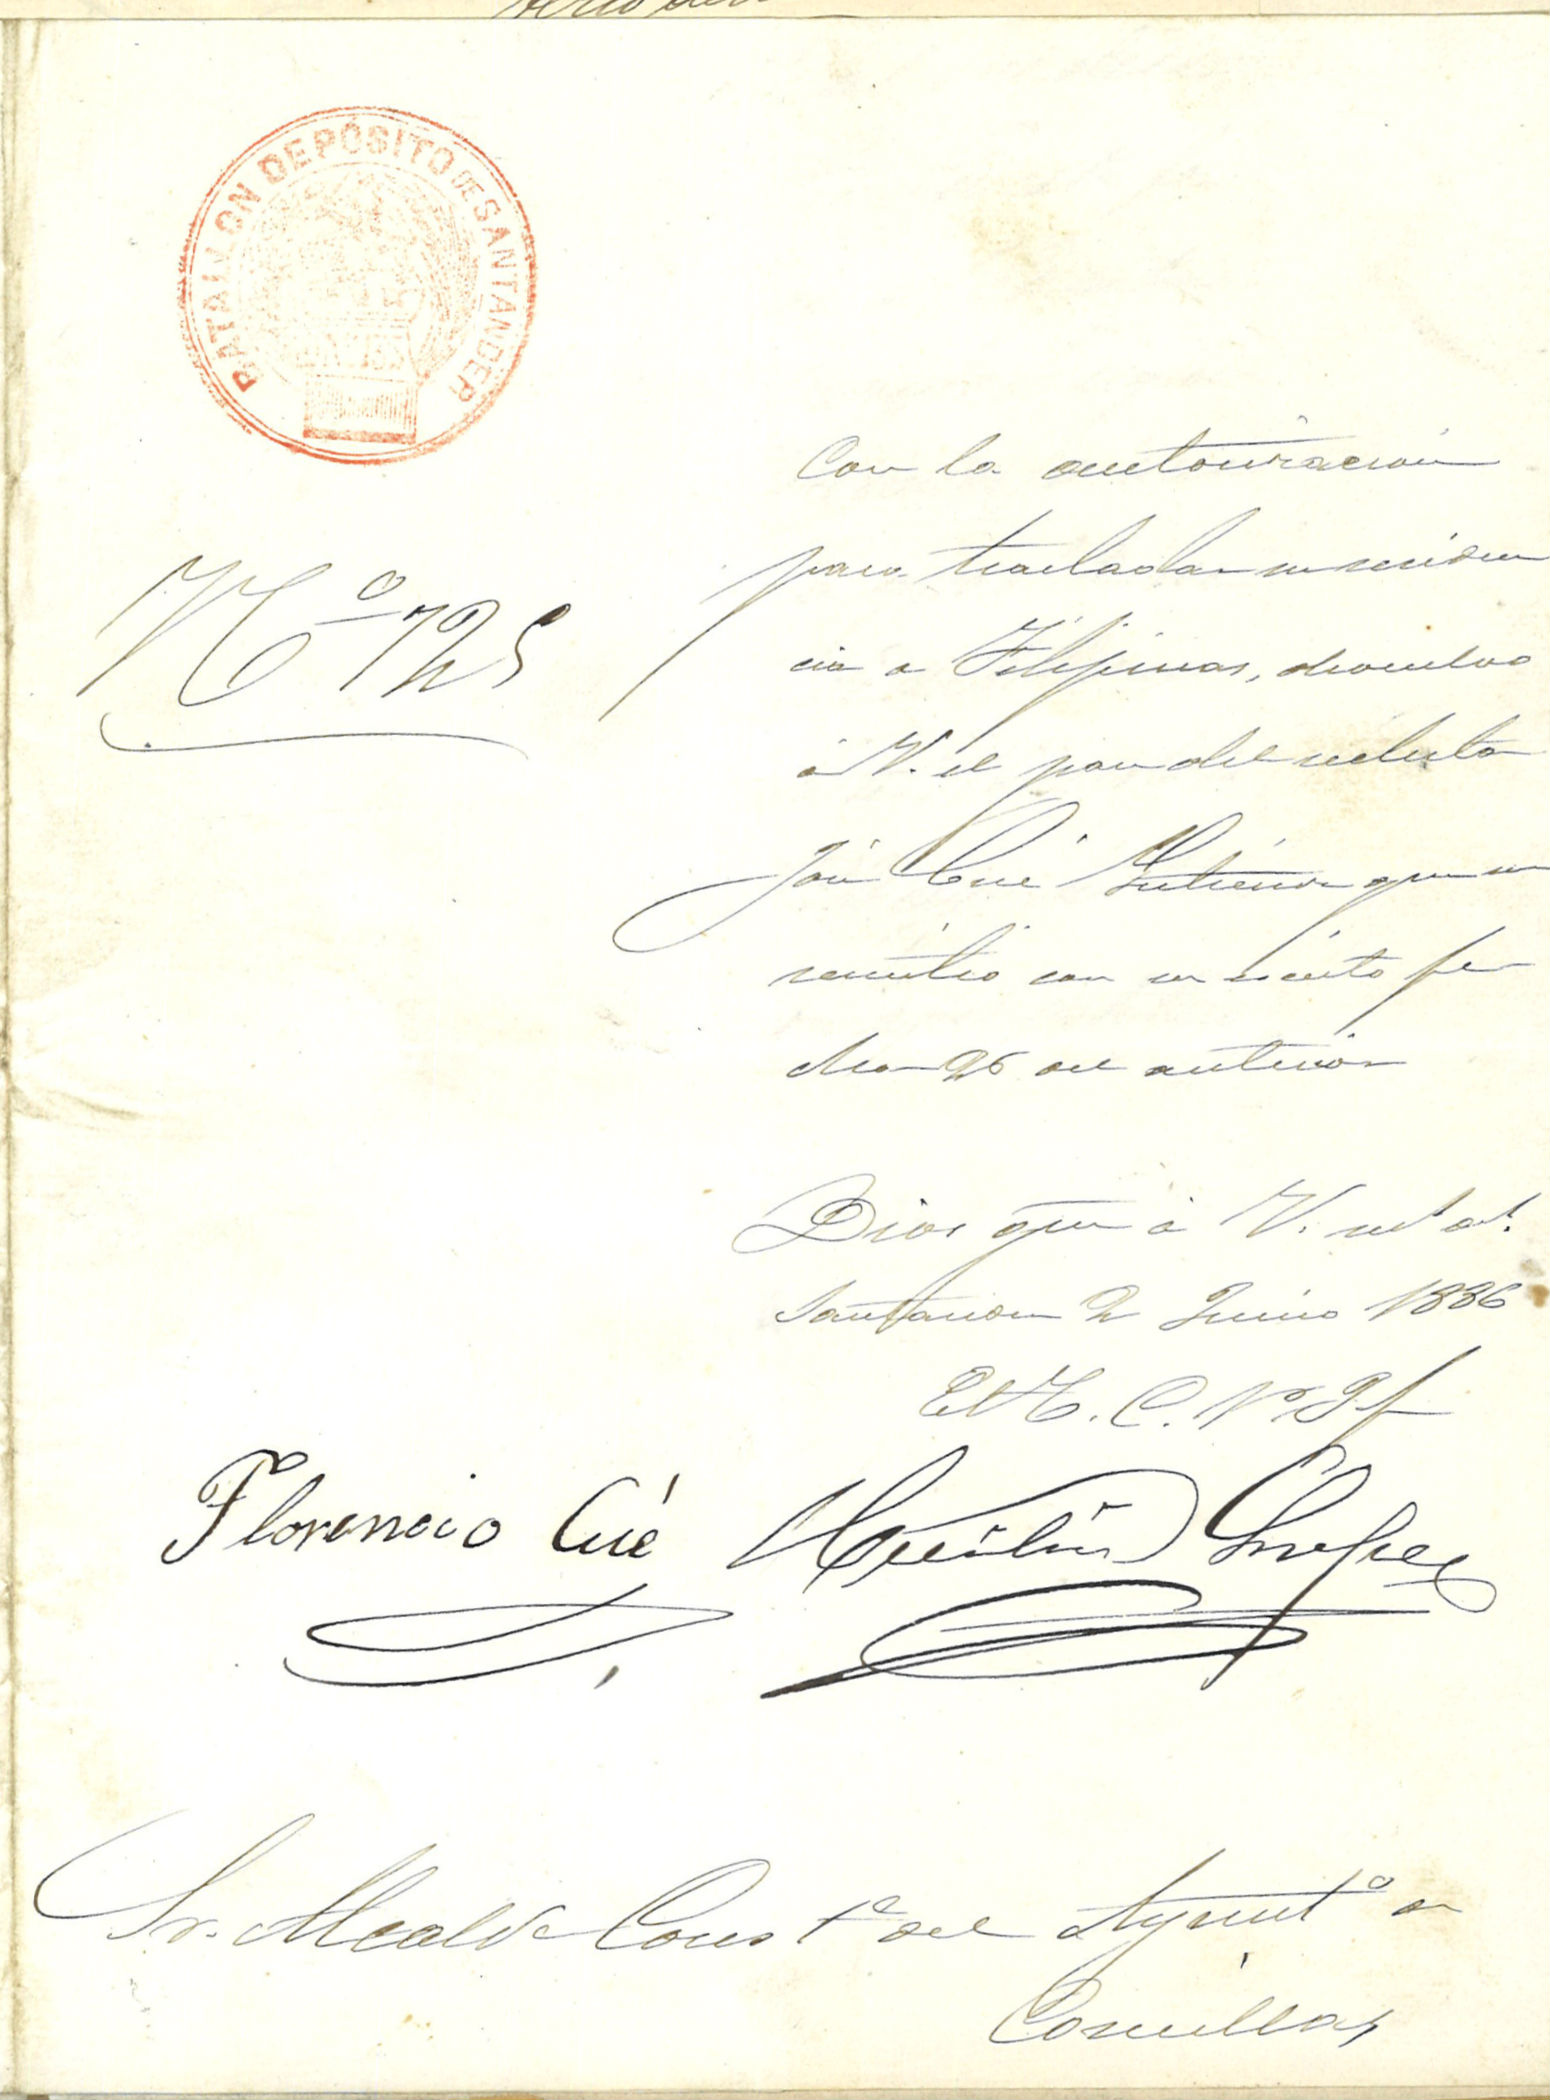 BATALLON DEPÓSITO DE SANTANDER
Nº 725
Con la autorización
para trasladar su residen
cia a Filipinas, devuelvo
á V. el pase del recluta
José Cué Gutiérrez que me
remitió con su escrito fe
cha 26 del anterior
Dios gue á V. ms as.
Santander 2 Junio 1886
El T. C. 1er Jf
Florencio Cué
López
Sr. Alcalde Const.l del Ayuntº de
Comillas